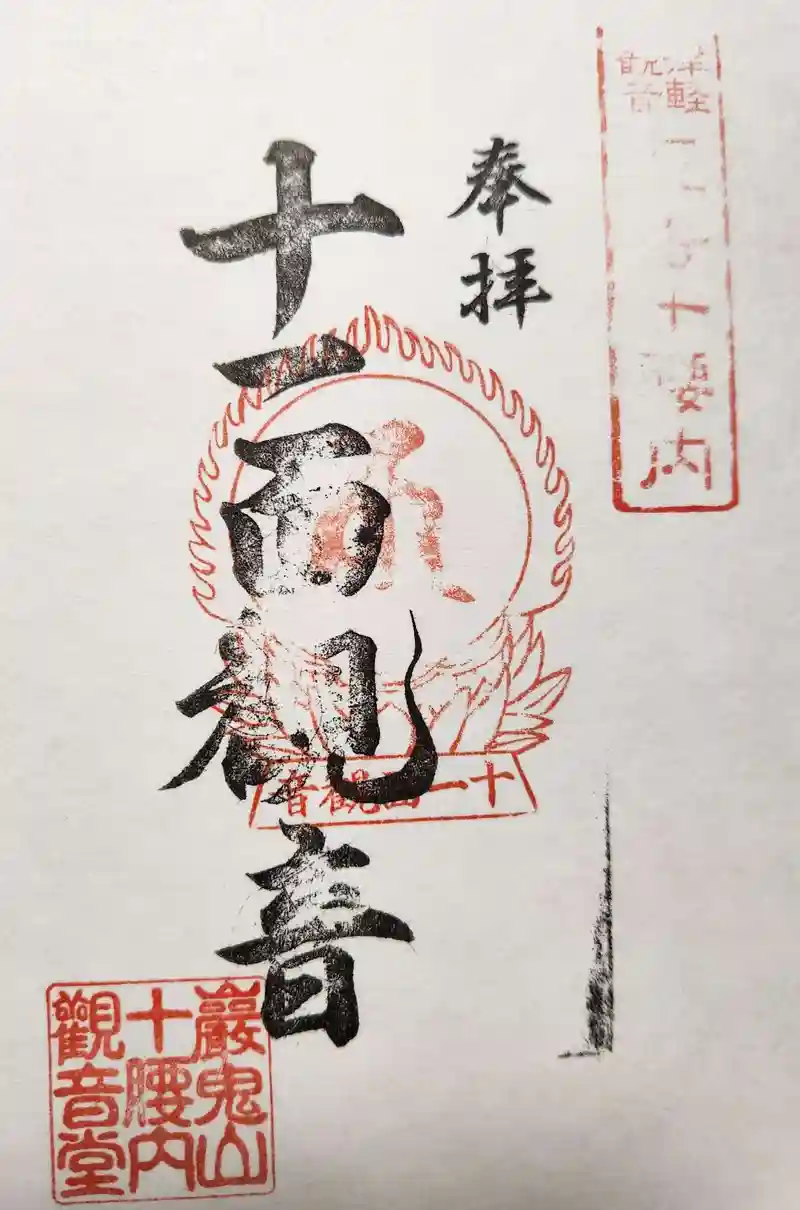 津軽
観音
十腰内
奉拝
十一面観音
十一面観音
巖鬼山
十腰内
觀音堂